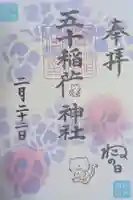 奉拝
五十稲荷神社
ねこの日
二月二十二日